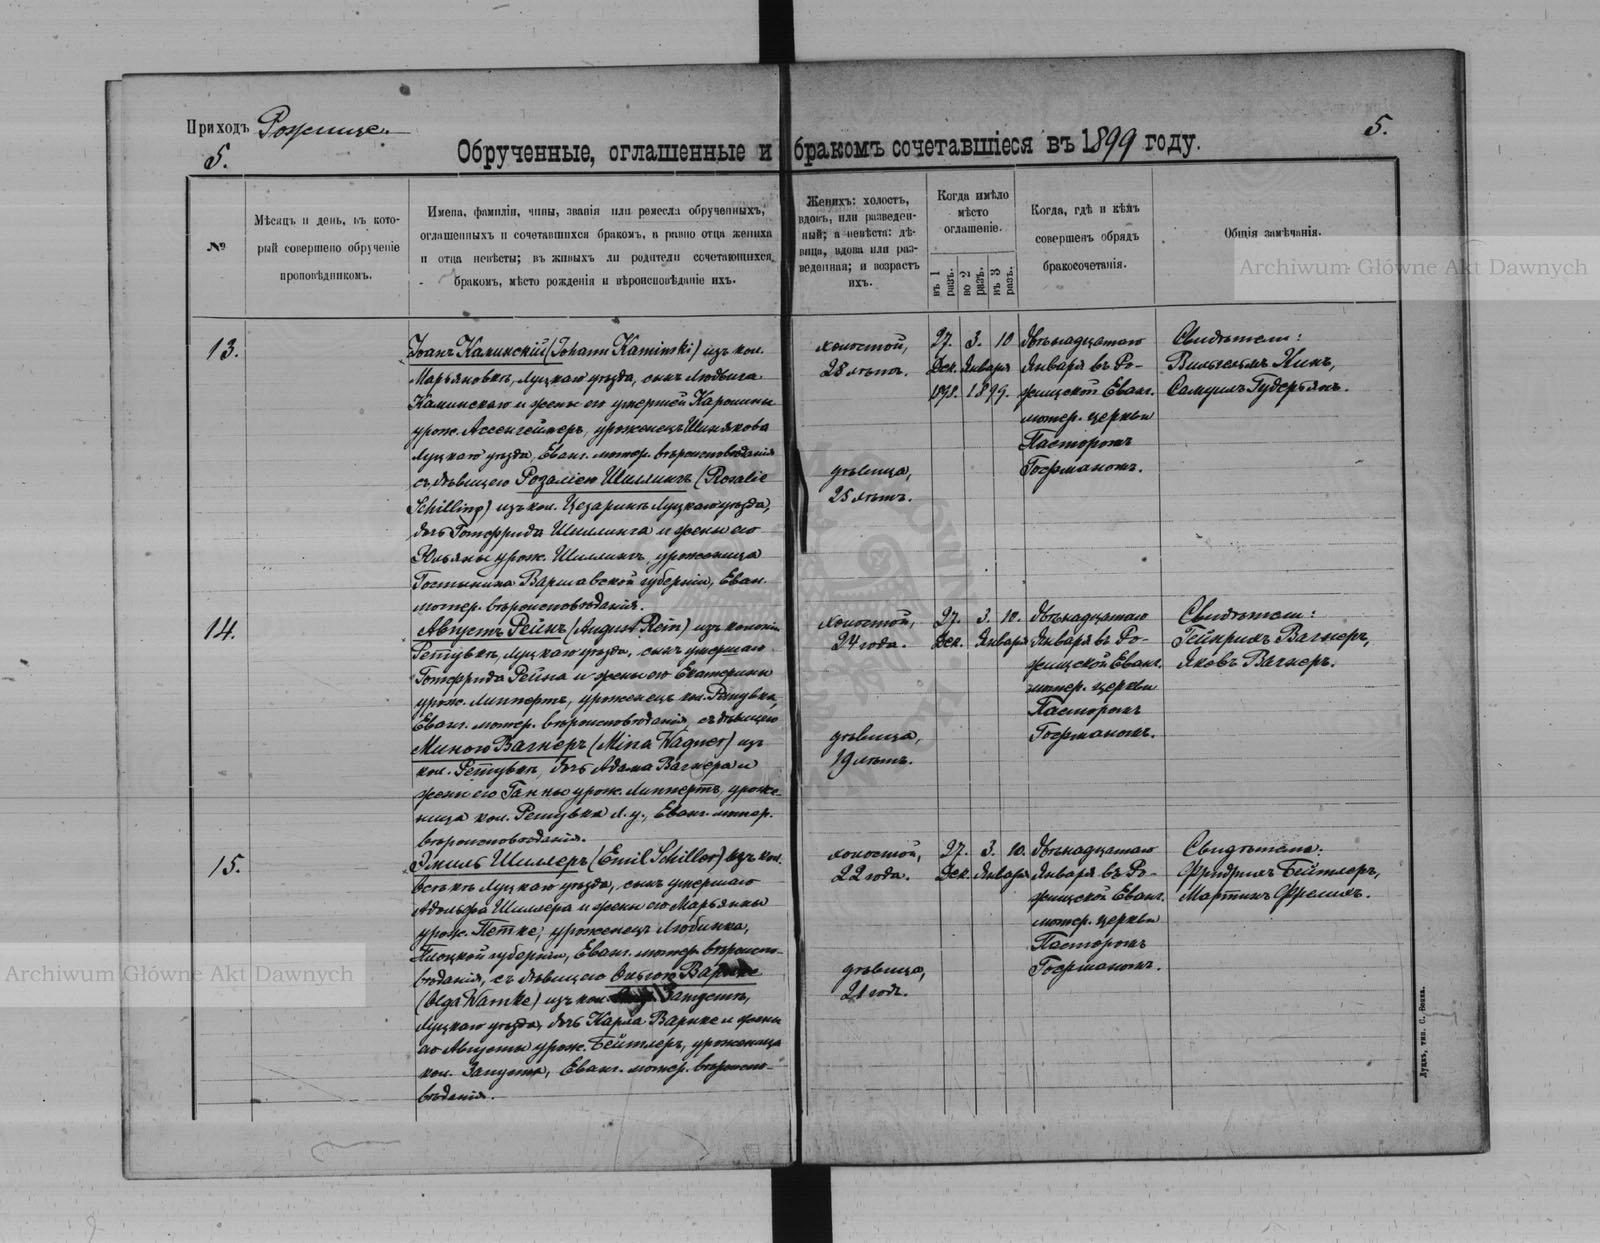 Приходъ Рожище.
5.
5.
Обрученные, оглашенные и бракомъ сочетавшіеся въ 1899 году.
№
Мѣсяцъ и день, въ кото-
рый совершено обрученіе
проповѣдникомъ.
Имена, фамиліи, чины, званія или ремесла обрученныхъ,
оглашенныхъ и сочетавшихся бракомъ, а равно отца жениха
и отца невѣсты; въ живыхъ ли родители сочетающихся
бракомъ, мѣсто рожденія и вѣроисповѣданіе ихъ.
Женихъ: холостъ,
вдовъ, или разведен-
ный; а невѣста: дѣ-
вица, вдова или раз-
веденная; и возрастъ
ихъ.
Когда имѣло
мѣсто
оглашеніе.
въ 1 разъ.
во 2 разъ.
въ 3 разъ.
Когда, гдѣ и кѣмъ
совершенъ обрядъ
бракосочетанія.
Общія замѣчанія.
Archiwum Główne Akt Dawnych
13.
Іоанъ Каминскій (Johann Kaminski) изъ кол.
Марьяновки, Луцкаго уѣзда, сынъ Людвига
Каминскаго и жены его умершей Каролины
урож. уроженецъ
Луцкаго уѣзда, Еванг. лютер. вѣроисповѣданія
съ дѣвицею Розаліею Шиллингъ (Rosalie
Schilling) изъ кол. Цезаринъ Луцкаго уѣзда,
дочь Готфрида Шиллинга и жены его
Юльяны урож. Шиллингъ, уроженица
Гостынина Варшавской губерніи, Еван.
лютер. вѣроисповѣданія.
холостой,
28 лѣтъ.
дѣвица,
25 лѣтъ.
27. 3. 10
Дек. Января
1898. 1899.
Двѣнадцатаго
Января въ Ро-
жищской Еванг.
лютер. церкви
Пасторомъ
Гофманомъ.
Свидѣтели:
Вильгельмъ Кинъ,
Самуилъ Гудерьянъ.
14.
Августъ Рейнъ (August Rein) изъ колоніи
Репувки, Луцкаго уѣзда, сынъ умершаго
Готфрида Рейна и жены его Екатерины
урож. Липпертъ, уроженецъ кол. Репувка,
Еванг. лютер. вѣроисповѣданія, съ дѣвицею
Миною Вагнеръ (Mina Wagner) изъ
кол. Репувки, дочь Адама Вагнера и
жены его Ганны урож. Липпертъ, уроже-
ница кол. Репувка Л. у., Еванг. лютер.
вѣроисповѣданія.
холостой,
24 года.
дѣвица,
19 лѣтъ.
27. 3. 10.
Дек. Января
Двѣнадцатаго
Января въ Ро-
жищской Еванг.
лютер. церкви
Пасторомъ
Гофманомъ.
Свидѣтели:
Гейнрихъ Вагнеръ,
Яковъ Вагнеръ.
15.
Эмиль Шиллеръ (Emil Schiller) изъ кол.
Луцкаго уѣзда, сынъ умершаго
Адольфа Шиллера и жены его Марьянны
урож. Петке, уроженецъ Любинка,
Плоцкой губерніи, Еванг. лютер. вѣроиспо-
вѣданія, съ дѣвицею Ольгою Варнке
(Olga Warnke) изъ кол. Запустъ,
Луцкаго уѣзда, дочь Карла Варнке и жены
его Августы урож. Бейтлеръ, уроженица
кол. Запуста, Еванг. лютер. вѣроиспо-
вѣданія.
холостой,
22 года.
дѣвица,
21 годъ.
27. 3. 10.
Дек. Января
Двѣнадцатаго
Января въ Ро-
жищской Еванг.
лютер. церкви
Пасторомъ
Гофманомъ.
Свидѣтели:
Фридрихъ Бейтлеръ,
Мартинъ
Archiwum Główne Akt Dawnych
Луцкъ, тип. С. Бокка.